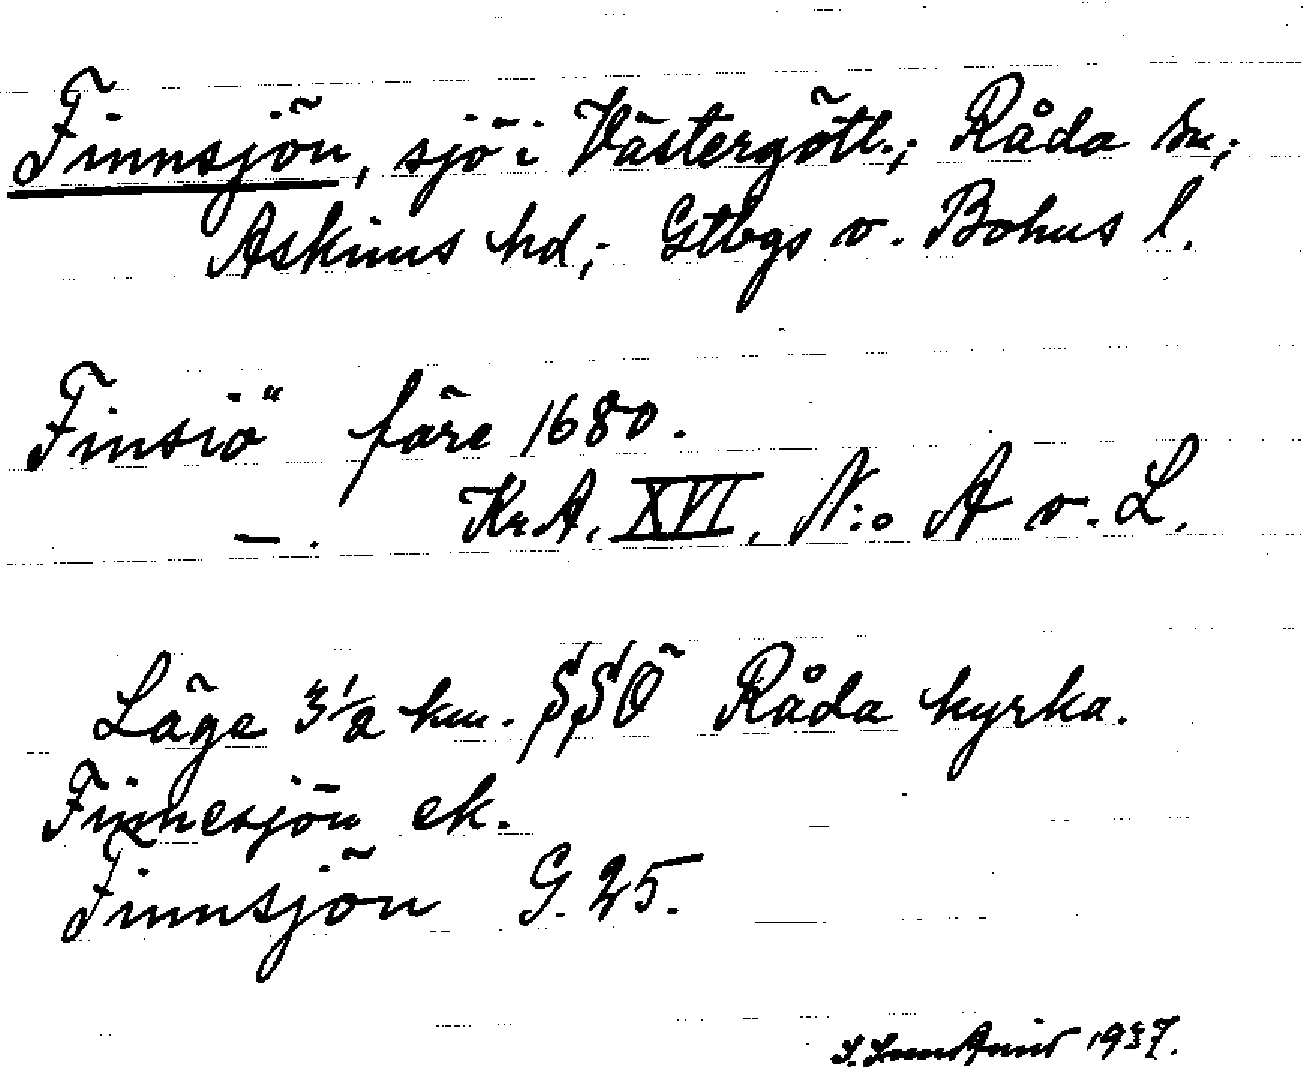 Finnsjön, sjö i Västergötl.; Råda sn;
Askims hd; Gtbgs o. Bohus l.
Finsiö före 1680.
—. Kr.A. XVI, N:o A o. L.
Läge 3 1/2 km. SSÖ Råda kyrka.
Finnesjön ek.
Finnsjön G. 25.
1937.